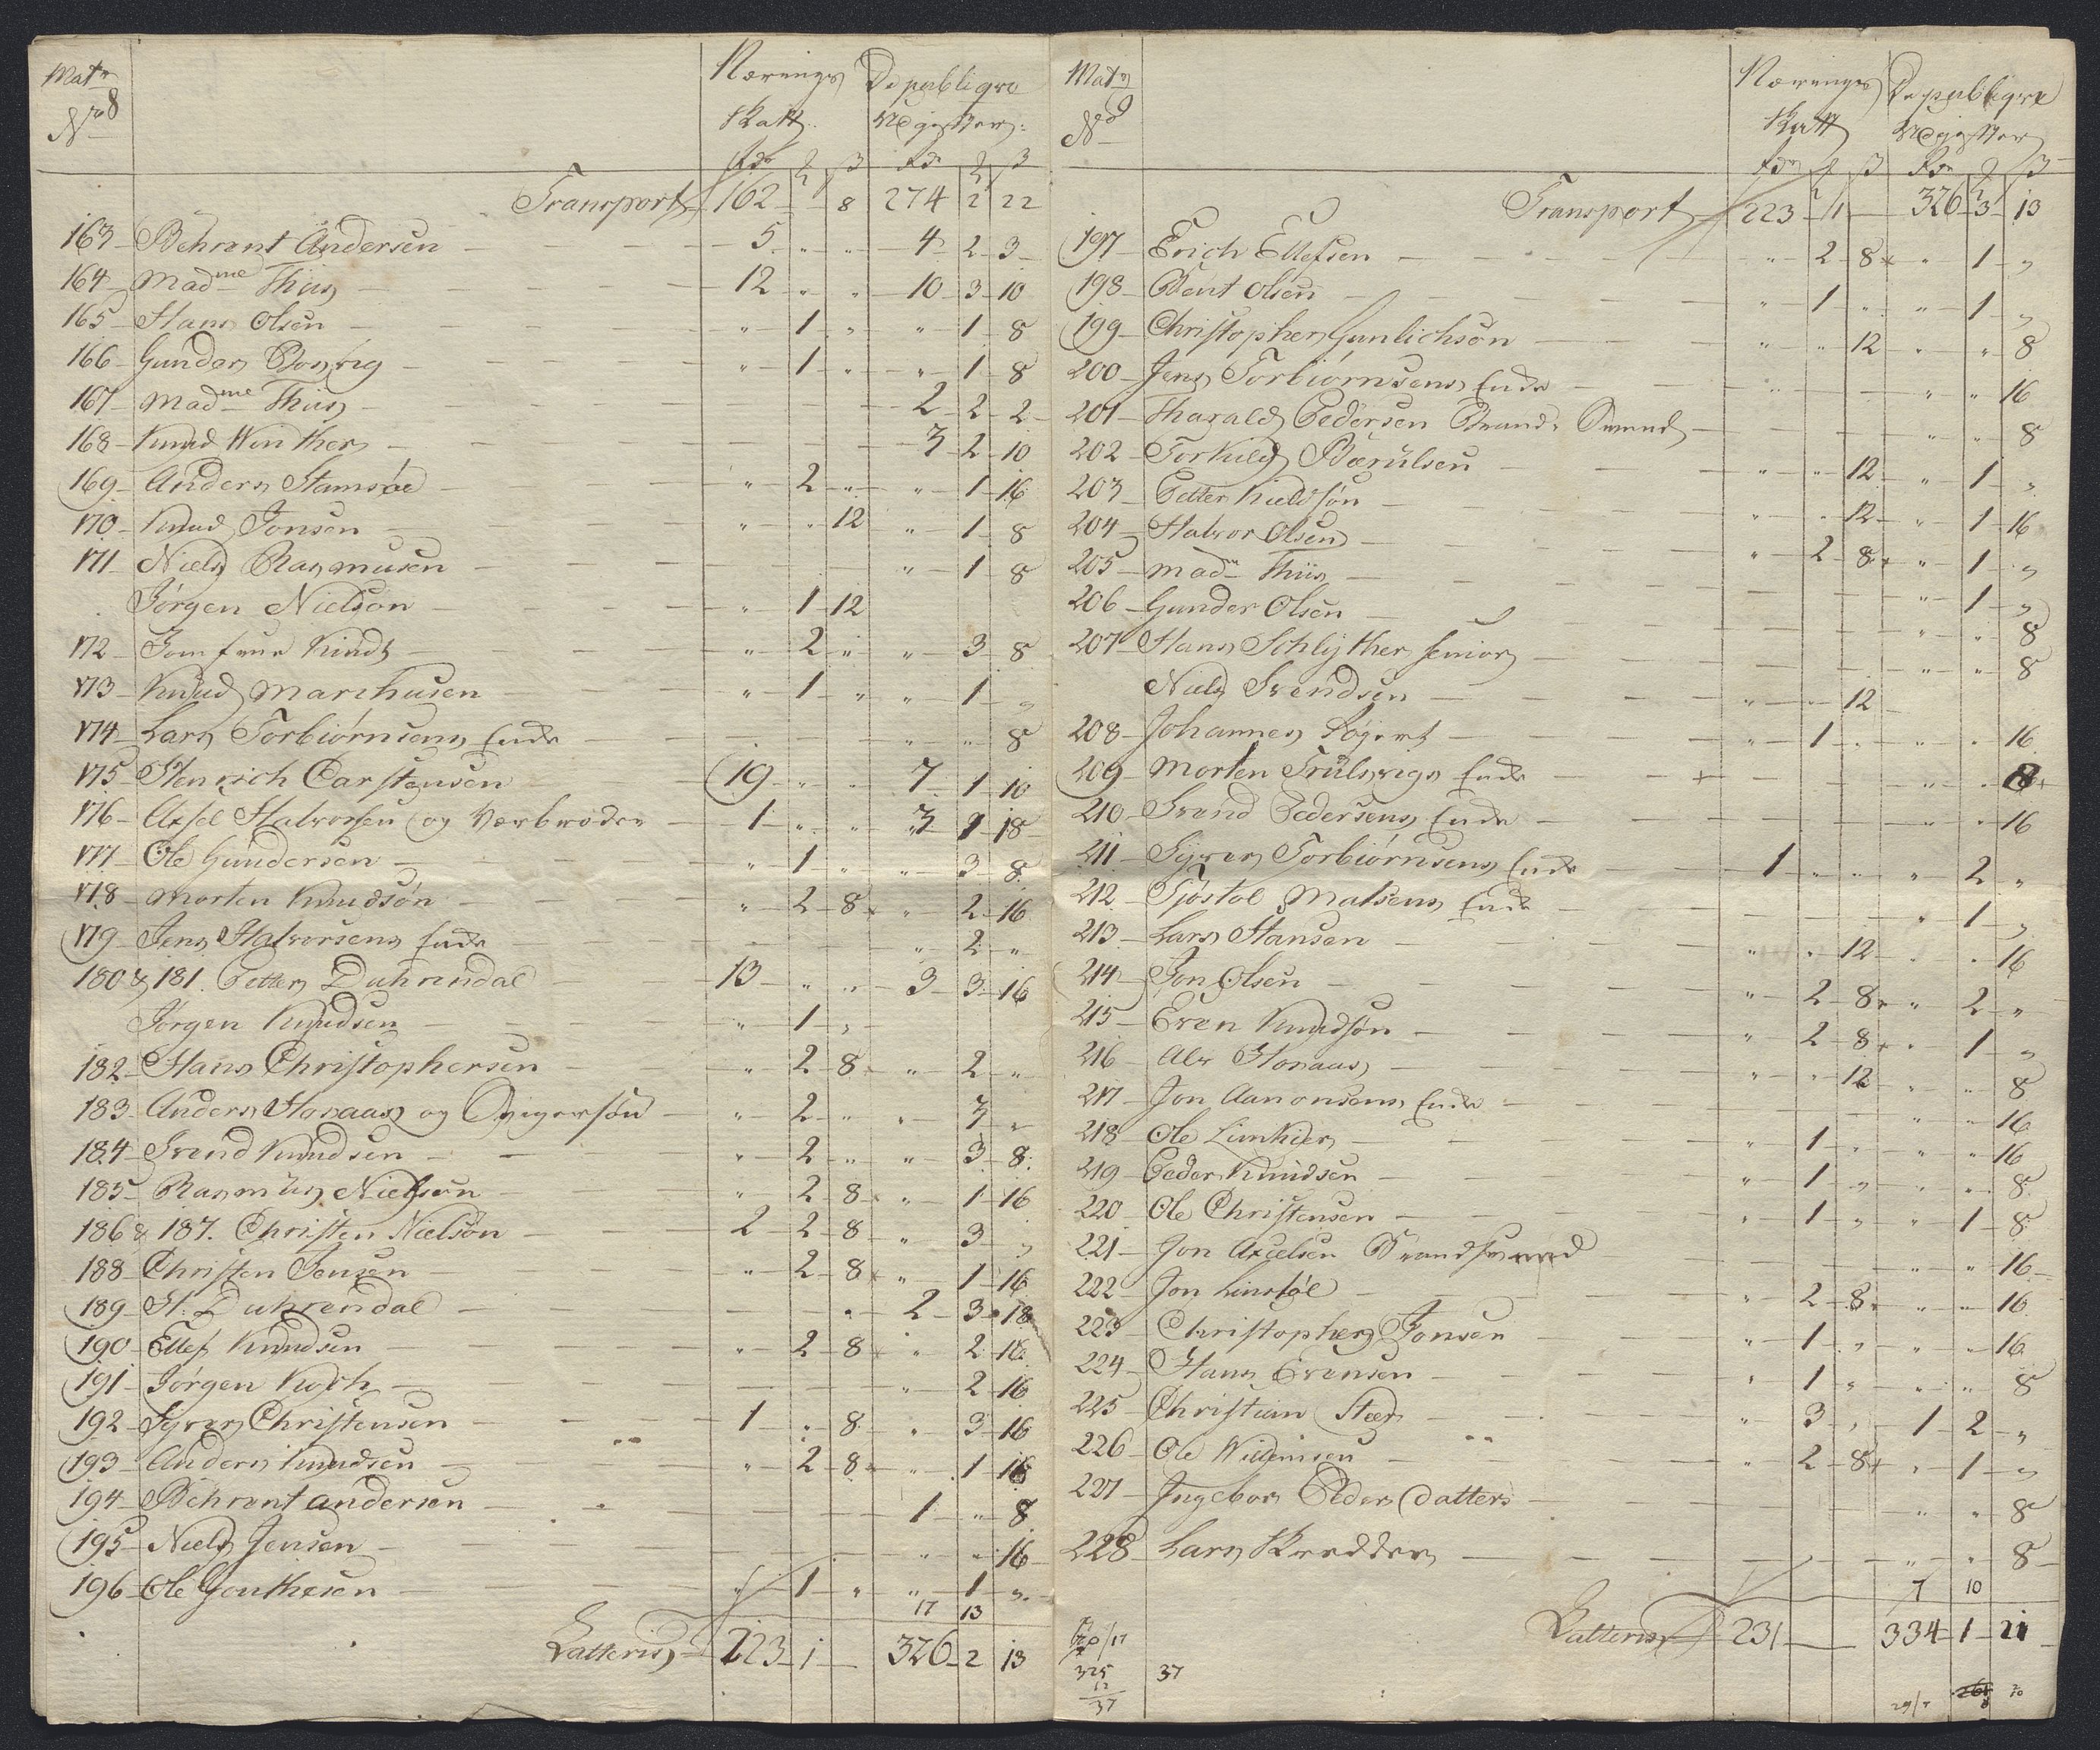 Matr No
Nærings Skatt
De publiqve Register
Rdr ß
Transport 162 " 8 274 2 22
163 Behrent Andersen 5 " " 4 2 3
164 Madme Thiis 12 " " 10 3 10
165 Hans Olsen " 1 " " 1 8
166 Gunder " 1 " " 1 8
167 Madme Thiis 2 2 2
168 Knud Winther 3 2 10
169 Anders Stamsøe " 2 " " 1 16
170 Knud Jonsen " " 12 " 1 8
171 Niels Rasmusen " 1 8
Jørgen Nielsøn " 1 12
172 Jomfrue Kindt " 2 " " 3 8
173 Knud Marchusen " 1 " " 1 "
174 Lars Torbiørnsens Enke " " 8
175 Henrich Carstensen 19 " " 7 1 10
176 Axsel Halvorsen og Værbroder 1 " " 3 18
177 Ole Gundersen " 1 " " 3 8
178 Morten Knudsøn " 2 8 " 2 16
179 Jens Halvorsens Enke " 2 "
180 & 181. Petter Duhrendal 13 " " 3 3 16
Jørgen Knudsen " 1 "
182 Hans Christophersen " 2 8 " 2 "
183 Anders Honaas og " 2 " " 3 "
184 Svend Knudsen " 2 " " 3 8
185 Rasmus Nielsøn " 2 8 " 1 16
186 & 187. Christen Nielsøn 2 2 8 " 3 "
188 Christen Jensen " 2 8 " 1 16
189 H. Duhrendal " 2 3 18
190 Ellef Knudsen " 2 8 " 2 16
191 Jørgen Koch " 2 16
192 Syver Christensen 1 " 8 " 3 16
193 Anders Knudsen " 2 8 " 1 16
194 Behrent Andersen 1 " 8
195 Niels Jensen " " 16
196 Ole Gouthesen " 1 " " 1 "
17 13
Latteris 223 1 326 2 13
Matr No
Nærings Skatt
De publiqve Register
Rdr ß
Transport 223 1 326 3 13
197 Erich Ellefsen " 2 8 " 1 "
198 Bent Olsen " 1 " " 1 "
199 Christopher Gunlichsøn " " 12 " " 8
200 Jens Torbiørnsens Enke " " 16
201 Tharald Pedersen Brand Svend " " 8
202 Torkild Bærulsen " " 12 " 1 "
203 Petter Kieldsøn " " 12 " 1 16
204 Halvor Olsen " 2 8 " 1 "
205 Made Thiis " 1 "
206 Gunder Olsen " " 8
207 Hans Schlyther senior " " 8
Niels Svendsen " " 12
208 Johannes " 1 " " " 16
209 Morten Enke " "
210 Svend Pedersens Enke " " 16
211 Syver Torbiørnsens Enke 1 " " " 2 "
212 Tjøstol Matsens Enke " 1 "
213 Lars Hansen " " 12 " " 16
214 Jon Olsen " 2 8 " 2 "
215 Even Knudsøn " 2 8 " 1 "
216 Alv Honaas " " 12 " " 8
217 Jon Aanonsens Enke " " 16
218 Ole Limkier " 1 " " " 16
219 Peder Knudsen " 1 " " " 8
220 Ole Christensen " 1 " " 1 8
221 Jon Axelsen Brandsvend " " 16
222 Jon Linstøl " 2 8 " " 16
223 Christopher Jonsen " 1 " " " 16
224 Hans Evensen " 1 " " " 8
225 Christian Stær " 3 " 1 2 "
226 Ole " 2 8 " 1 "
227 Ingebor Peders Datter " " 8
228 Lars Skrædder " " 8
7 10
Latteris 231 334 1 21
325 37
12
37